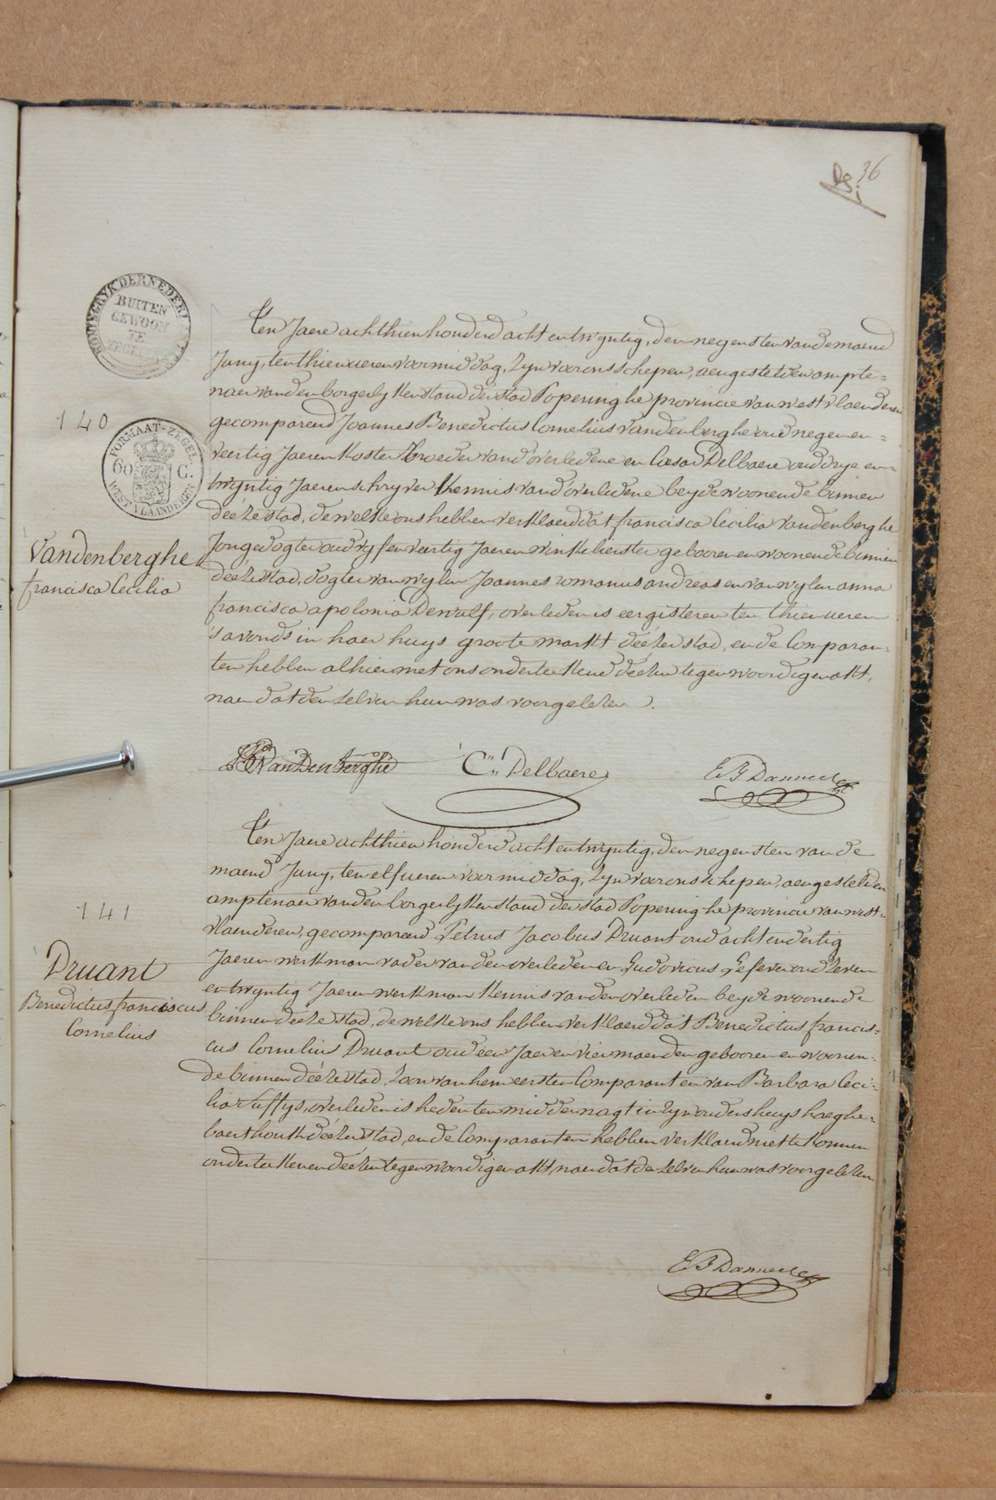 36
KONINGRYK DER NEDERL
BUITEN
GEWOON
TE
140
FORMAAT-ZEGEL
60 C.
WEST-VLAANDEREN
Vandenberghe
francisca Cecilia
Ten Jaere achthien honderd acht en twyntig, den negensten van de maend
Juny, ten thien ueren voormiddag, zyn voor ons schepen, aengestelden ampte=
naer van den borgerlyken stand der stad Poperinghe provincie van westvlaenderen
gecompareerd Joannes Benedictus Cornelius Vandenberghe oud negen en=
veertig Jaeren koster Broeder vand'overledene en Cesar Delbaere oud drye en=
twyntig Jaeren schryver kennis vand'overledene beyde woonende binnen
deéze stad, de welke ons hebben verklaerd dat francisca Cecilia vandenberghe
Jonge dogter oud vyf en veertig Jaeren winkelierster gebooren en woonende binnen
deéze stad, dogter van wylen Joannes romanus andreas en van wylen anna
francisca apolonia Dewulf, overleden is eergisteren ten thien ueren
's avonds in haer huys groote markt deéze stad, en de Comparan=
ten hebben alhier met ons onderteekend deézen tegenwoordigen akt,
naer dat den zelven hun was voorgelezen.
VanDenberghe
Cr. Delbaere
141
Druant
Benedictus franciscus
Cornelius
Ten Jaere achthien honderd acht en twyntig, den negensten van de
maend Juny, ten elf ueren voormiddag, zyn voor ons schepen, aengestelden
amptenaer van den borgerlyken stand der stad Poperinghe provincie van west=
vlaenderen, gecompareerd Petrus Jacobus Druant oud acht en dertig
Jaeren werkman vader van den overleden en Ludovicus Lefever oud zeven
en twyntig Jaeren werkman kennis van den overleden beyde woonende
binnen deéze stad, de welke ons hebben verklaerd dat Benedictus francis=
cus Cornelius Druant oud een Jaer en vier maenden gebooren en woonen=
de binnen deéze stad, zoon van hem eersten Comparant en van Barbara Ceci=
lia overleden is heden ten middernagt in zyn ouders huys
deéze stad, en de Comparanten hebben verklaerd niet te konnen
onderteekenen deézen tegenwoordigen akt, naer dat den zelven hun was voorgelezen